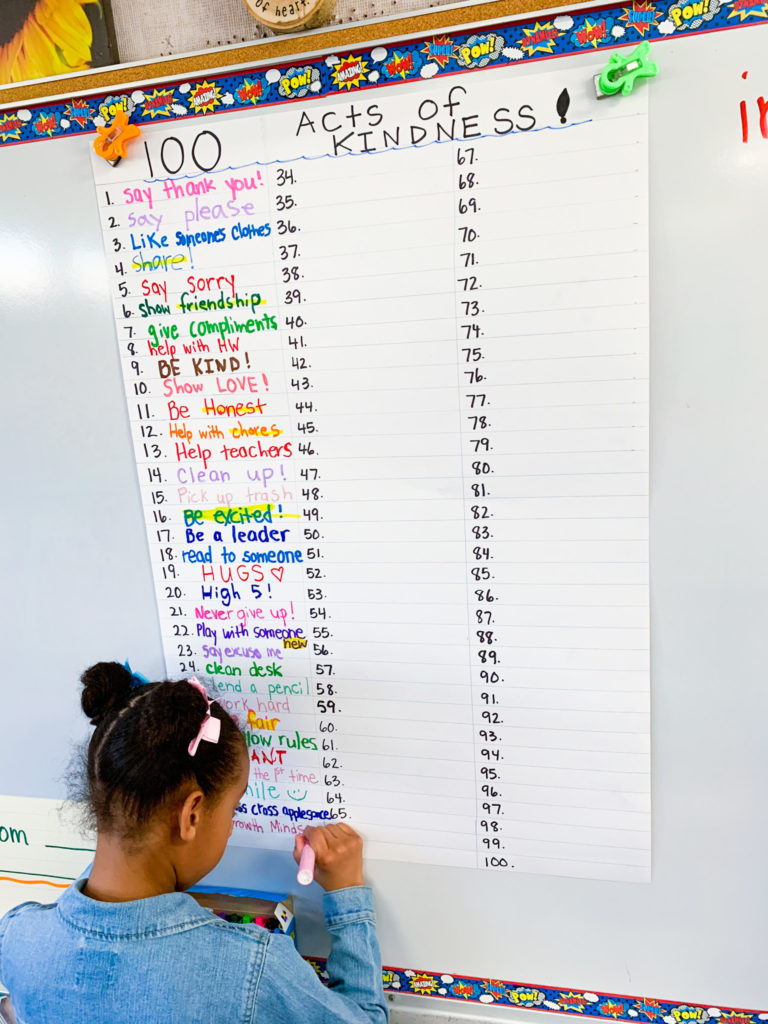 of heart.
100 Acts of
KINDNESS!
1. Say thank you!
2. Say please
3. Like someones clothes
4. Share!
5. Say sorry
6. Show friendship
7. give compliments
8. help with HW
9. BE KIND!
10. Show LOVE!
11. Be Honest
12. Help with chores
13. Help teachers
14. Clean up!
15. Pick up trash
16. Be excited!
17. Be a leader
18. read to someone
19. HUGS ♡
20. High 5!
21. Never give up!
22. Play with someone new
23. Say excuse me
24. clean desk
lend a pencil
work hard
fair
rules
the 1st time
cross applesauce
Growth
34.
35.
36.
37.
38.
39.
40.
41.
42.
43.
44.
45.
46.
47.
48.
49.
50.
51.
52.
53.
54.
55.
56.
57.
58.
59.
60.
61.
62.
63.
64.
65.
67.
68.
69.
70.
71.
72.
73.
74.
75.
76.
77.
78.
79.
80.
81.
82.
83.
84.
85.
86.
87.
88.
89.
90.
91.
92.
93.
94.
95.
96.
97.
98.
99.
100.